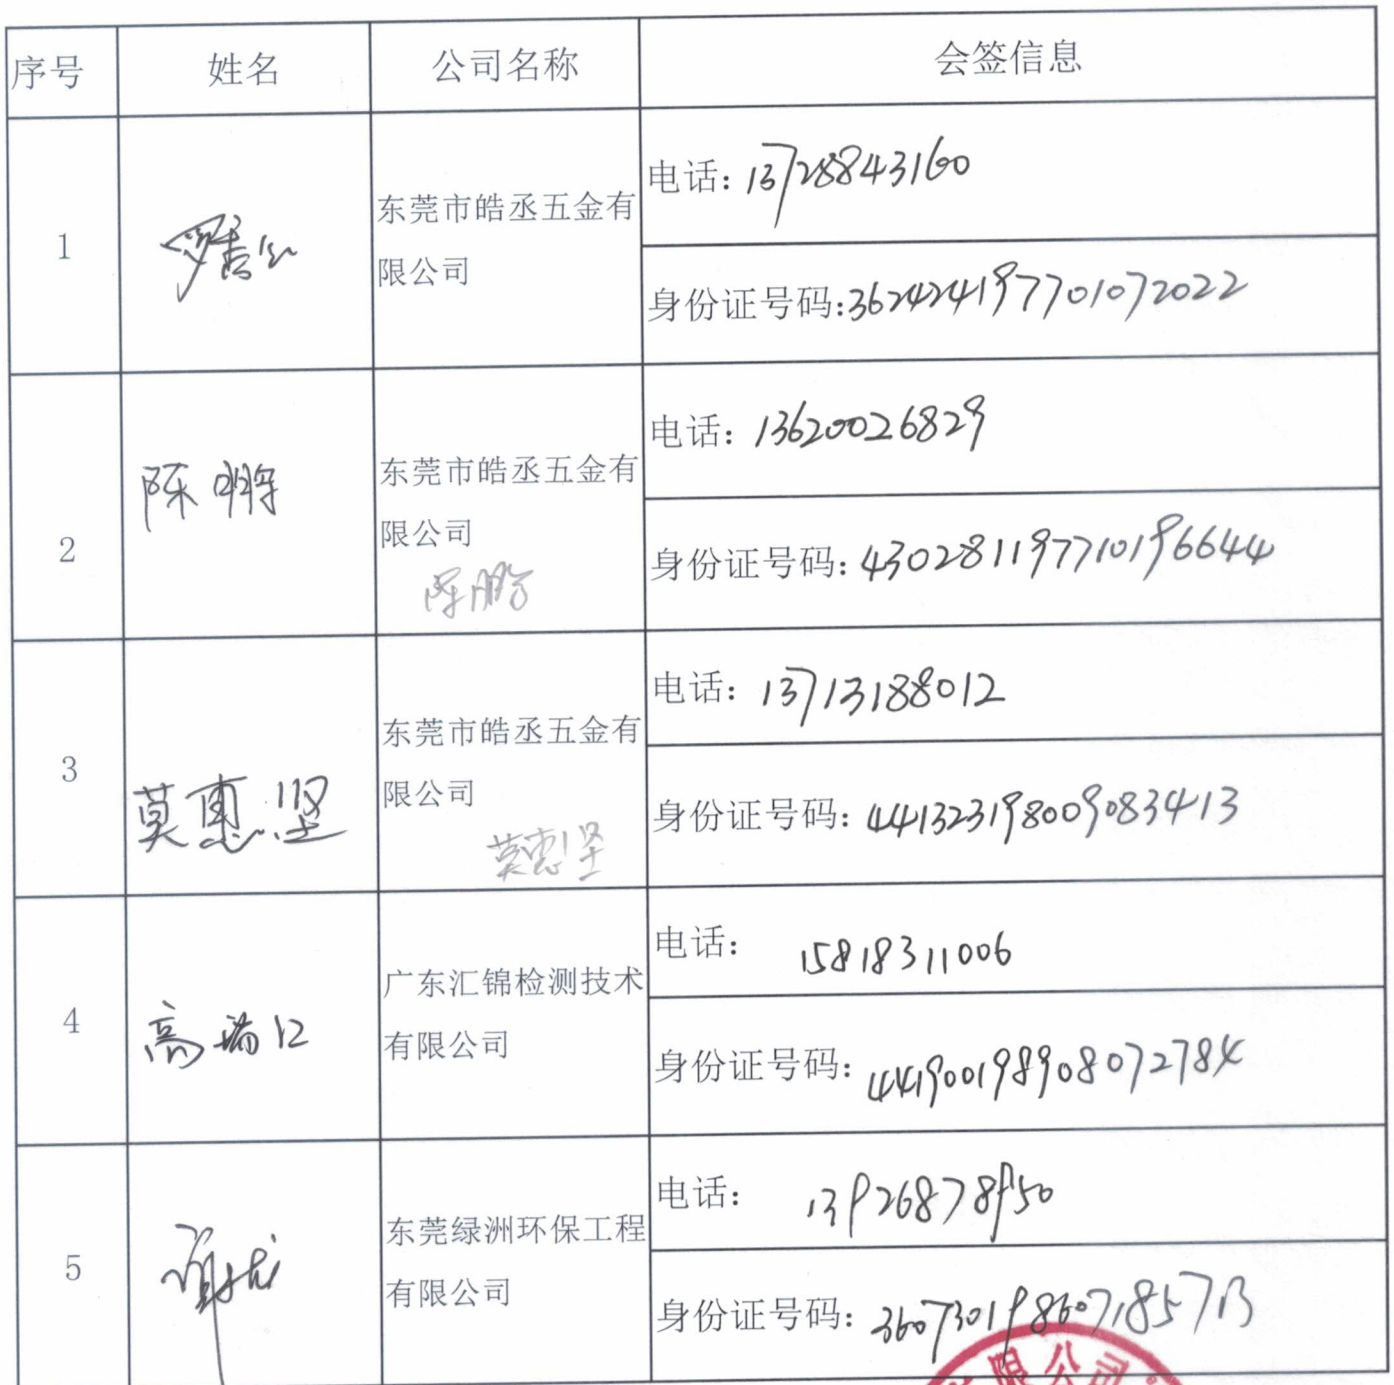 序号 姓名 公司名称 会签信息
1
东莞市皓丞五金有
限公司
电话：13728843160
身份证号码：362424197701072022
2 陈鹏
东莞市皓丞五金有
限公司
陈鹏
电话：13620026829
身份证号码：430281197710196644
3 莫惠坚
东莞市皓丞五金有
限公司
莫惠坚
电话：13713188012
身份证号码：441323198009083413
4 高瑞江
广东汇锦检测技术
有限公司
电话：15818311006
身份证号码：441900198908072784
5
东莞绿洲环保工程
有限公司
电话：13926878950
身份证号码：360730198607185713
限公司